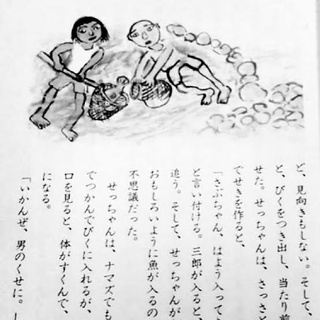 ど、見向きもしない。そして、
と、びくをつき出し、当たり前
せた。せっちゃんは、さっさと
でせきを作ると、
「さぶちゃん、はよう入って
と言い付ける。三郎が入ると、
追う。そして、せっちゃんが
おもしろいように魚が入るの
不思議だった。
せっちゃんは、ナマズでも
でつかんでびくに入れるが、
口を見ると、体がすくんで、
になる。
「いかんぜ、男のくせに。